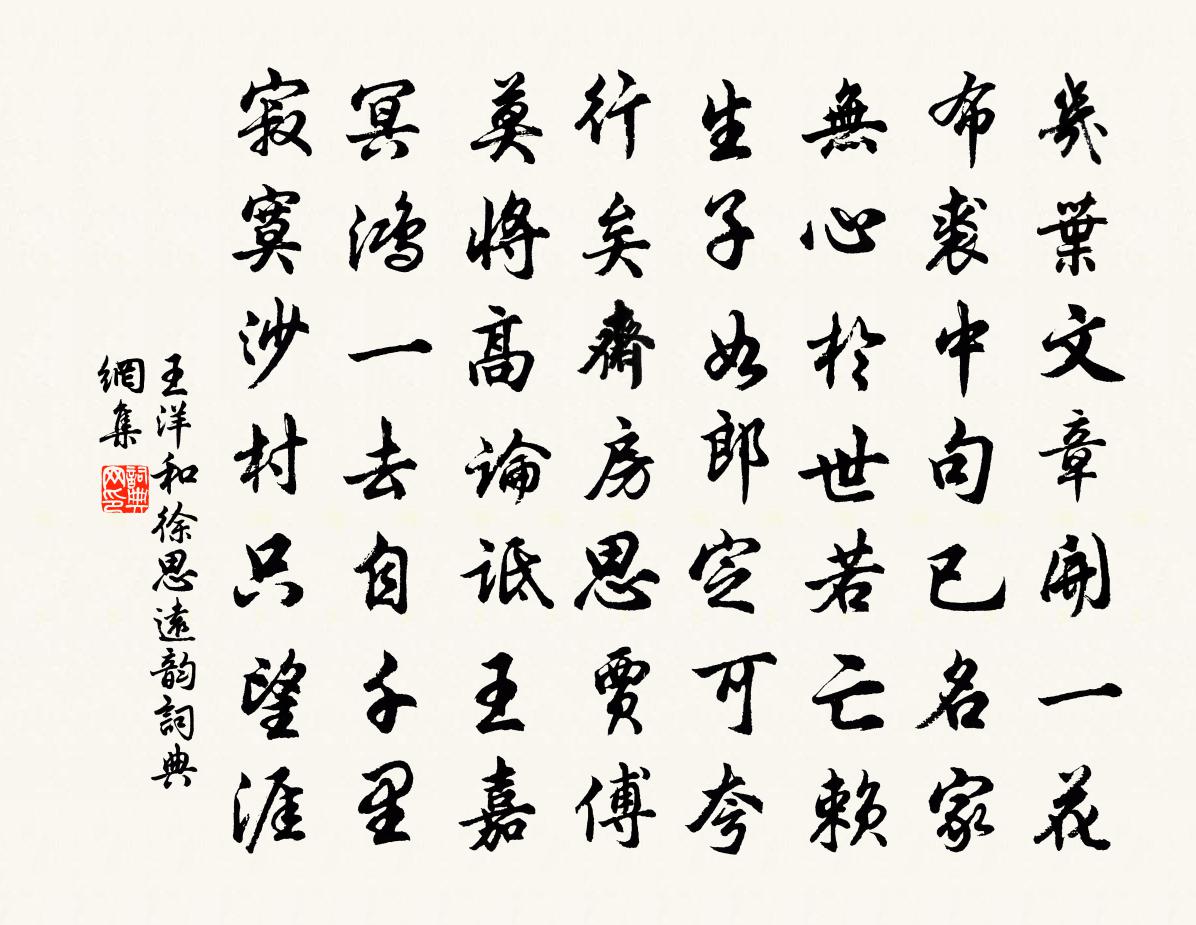 幾葉文章開一花
布裘中句已名家
無心於世若亡賴
生子如郎定可夸
行矣齋房思賈傅
莫將高論詆王嘉
冥鴻一去自千里
寂寞沙村只望涯
王洋和徐思遠韵詞典
網集
詞典
网印